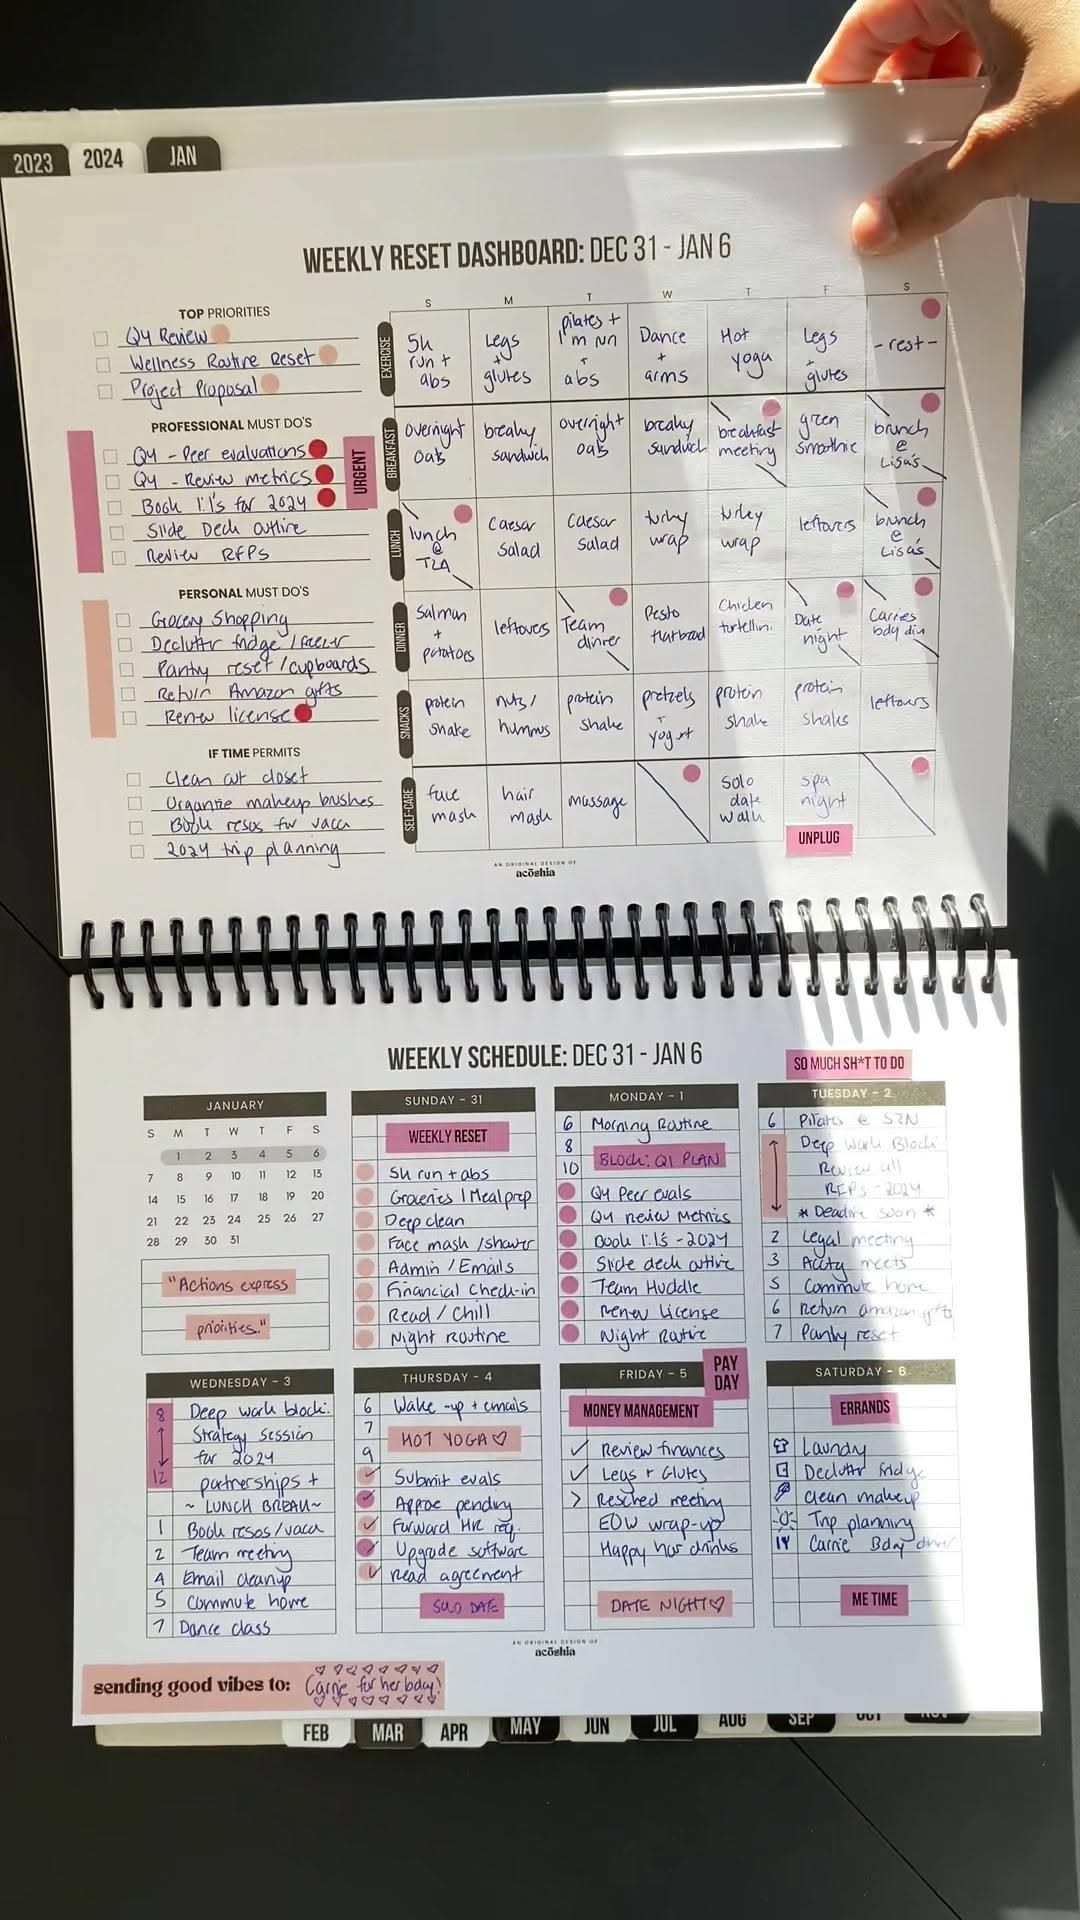 2023
2024
JAN
WEEKLY RESET DASHBOARD: DEC 31 - JAN 6
TOP PRIORITIES
Q4 Review
Wellness Routine Reset
Project Proposal
PROFESSIONAL MUST DO'S
Q4 - Peer evaluations
Q4 - Review metrics
Book 1:1's for 2024
Slide Deck outline
Review RFPS
URGENT
PERSONAL MUST DO'S
Grocery Shopping
Declutter fridge / freezer
Pantry reset / cupboards
Return Amazon gifts
Renew license
IF TIME PERMITS
Clean out closet
Organize makeup brushes
Book resos for vaca
2024 trip planning
S M T W T F S
EXERCISE
5k
run +
abs
Legs
+
glutes
pilates +
I'm
+
abs
Dance
+
arms
Hot
yoga
Legs
+
glutes
- rest -
BREAKFAST
overnight
oats
breaky
sandwich
overnight
oats
breaky
sandwich
breakfast
meeting
green
smoothie
brunch
@
Lisa's
LUNCH
lunch
@
Caesar
Salad
Caesar
Salad
turkey
wrap
turkey
wrap
leftovers
brunch
@
Lisa's
DINNER
Salmon
+
potatoes
leftovers
Team
dinner
Pesto
flatbread
Chicken
tortellini
Date
night
Carries
bday din
SNACKS
protein
shake
nuts /
hummus
protein
shake
pretzels
+
yogurt
protein
shake
protein
shake
leftovers
SELF-CARE
face
mask
hair
mask
massage
Solo
date
walk
spa
night
UNPLUG
AN ORIGINAL DESIGN OF
acōshia
WEEKLY SCHEDULE: DEC 31 - JAN 6
SO MUCH SH*T TO DO
JANUARY
S M T W T F S
1 2 3 4 5 6
7 8 9 10 11 12 13
14 15 16 17 18 19 20
21 22 23 24 25 26 27
28 29 30 31
"Actions express
priorities."
SUNDAY - 31
WEEKLY RESET
5k run + abs
Groceries / Meal prep
Deep clean
Face mask / shower
Admin / Emails
Financial Check-in
Read / Chill
Night Routine
MONDAY - 1
6 Morning Routine
8
10 BLOCK: Q1 PLAN
Q4 Peer evals
Q4 review Metrics
Book 1:1's - 2024
Slide deck outline
Team Huddle
Renew License
Night Routine
TUESDAY - 2
6 Pilates @
Deep Work Block:
Review all
RFPs - 2024
* Deadline soon *
2 Legal meeting
3 meets
5 Commute home
6 Return amazon gifts
7 Pantry reset
WEDNESDAY - 3
8 Deep work block:
Strategy session
for 2024
12 partnerships +
~ LUNCH BREAK ~
1 Book resos / vaca
2 Team meeting
4 Email cleanup
5 Commute home
7 Dance class
THURSDAY - 4
6 Wake-up + emails
7
HOT YOGA ♡
9
Submit evals
Approve pending
Forward HR req.
Upgrade software
Read agreement
SOLO DATE
FRIDAY - 5
PAY
DAY
MONEY MANAGEMENT
✓ Review finances
✓ Legs + Glutes
> Resched meeting
EOW wrap-up
Happy hour drinks
DATE NIGHT ♡
SATURDAY - 6
ERRANDS
Laundry
Declutter fridge
Clean makeup
Trip planning
Carrie Bday dinner
ME TIME
AN ORIGINAL DESIGN OF
acōshia
sending good vibes to: Carrie for her bday!
FEB
MAR
APR
MAY
JUN
JUL
AUG
SEP
OCT
NOV